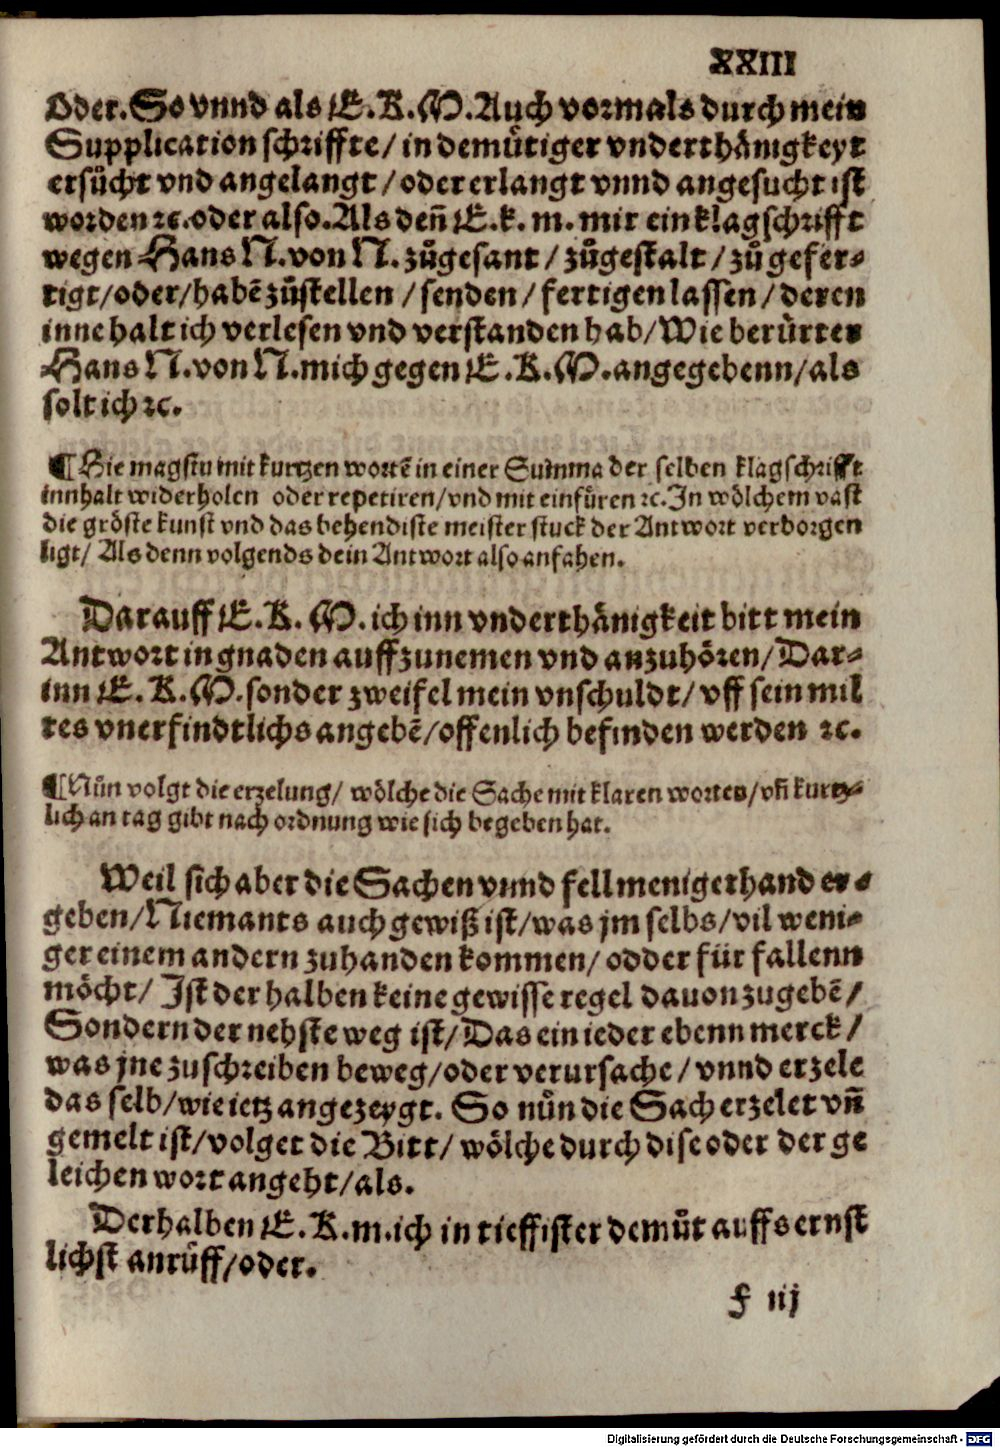 XXIII
Oder. So vnnd als E. K. M. Auch vormals durch mein
Supplication schriffte / in demütiger vnderthänigkeyt
ersůcht vnd angelangt / oder erlangt vnnd angesucht ist
worden ꝛc. oder also. Als deñ E. k. m. mir ein klagschrifft
wegen Hans N. von N. zůgesant / zůgestalt / zů gefer-
tigt / oder / habē zůstellen / senden / fertigen lassen / deren
inne halt ich verlesen vnd verstanden hab / Wie berůrter
Hans N. von N. mich gegen E. K. M. angegebenn / als
solt ich ꝛc.
¶ Hie magstu mit kurtzen wortē in einer Summa der selben klagschrifft
innhalt widerholen oder repetiren / vnd mit einfüren ꝛc. In wölchem vast
die gröste kunst vnd das behendiste meister stuck der Antwort verborgen
ligt / Als denn volgends dein Antwort also anfahen.
Darauff E. K. M. ich inn vnderthänigkeit bitt mein
Antwort in gnaden auffzunemen vnd anzuhören / Dar-
inn E. K. M. sonder zweifel mein vnschuldt / vff sein mil
tes vnerfindtlichs angebē / offenlich befinden werden ꝛc.
¶ Nůn volgt die erzelung / wölche die Sache mit klaren worten / vñ kurtz-
lich an tag gibt nach ordnung wie sich begeben hat.
Weil sich aber die Sachen vnnd fell menigerhand er-
geben / Niemants auch gewiß ist / was jm selbs / vil weni-
ger einem andern zuhanden kommen / odder für fallenn
möcht / Ist der halben keine gewisse regel dauon zugebē /
Sondern der nehste weg ist / Das ein ieder ebenn merck /
was jne zuschreiben beweg / oder verursache / vnnd erzele
das selb / wie ietz angezeygt. So nůn die Sach erzelet vñ
gemelt ist / volget die Bitt / wölche durch dise oder der ge
leichen wort angeht / als.
Derhalben E. K. m. ich in tieffister demůt auffs ernst
lichst anrůff / oder.
f iij
Digitalisierung gefördert durch die Deutsche Forschungsgemeinschaft - DFG